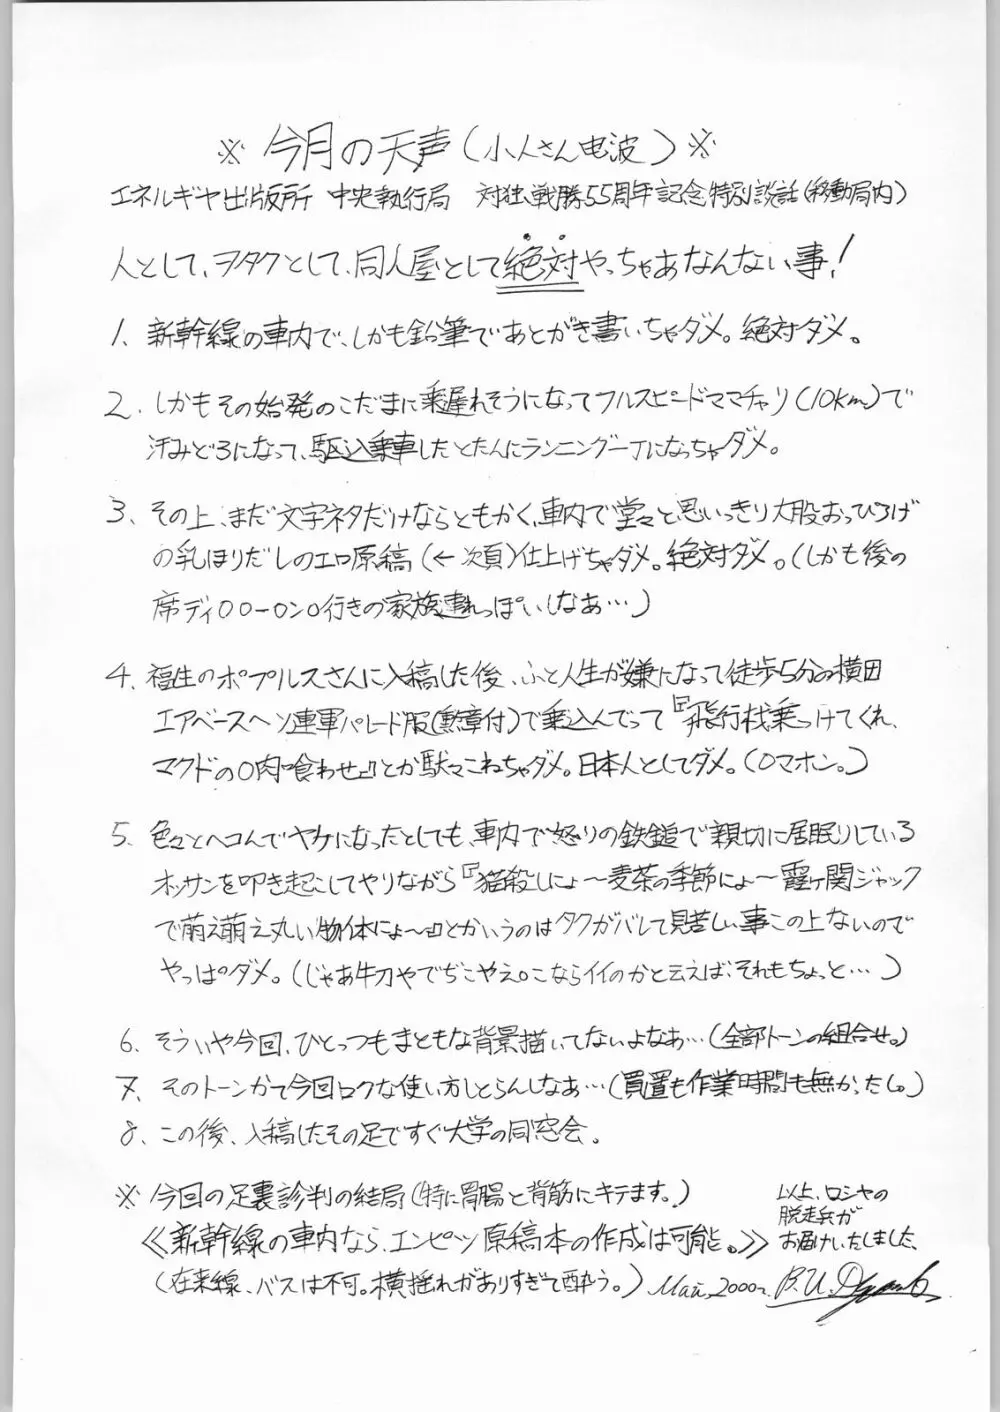 ※ 今月の天声(小人さん电波) ※
エネルギヤ出版所 中央執行局 対独戦勝55周年記念特別談話(移動局内)
人として、ヲタクとして、同人屋として絶対やっちゃあなんない事!
1、新幹線の車内で、しかも鉛筆であとがき書いちゃダメ。絶対ダメ。
2、しかもその始発のこだまに乗遅れそうになってフルスピードママチャリ(10km)で
汗みどろになって、駆込乗車したとたんにランニング一丁になっちゃダメ。
3、その上、まだ文字ネタだけならともかく、車内で堂々と思いっきり大股おっぴろげ
の乳ほりだしのエロ原稿(←次頁)仕上げちゃダメ。絶対ダメ。(しかも後の
席ディ○○ー○ン○行きの家族連れっぽいしなあ…)
4、福生のポプルスさんに入稿した後、ふと人生が嫌になって徒歩5分の横田
エアベースへソ連軍パレード服(勲章付)で乗込んでって『飛行机乗っけてくれ、
マクドの○肉喰わせ』とか駄々こねちゃダメ。日本人としてダメ。(○マホン。)
5、色々とヘコんでヤケになったとしても、車内で怒りの鉄鎚で親切に居眠りしている
オッサンを叩き起こしてやりながら『猫殺しにょ〜麦茶の季節にょ〜霞ヶ関ジャック
で萌え萌え丸い物体にょ〜』とかいうのはタクがバレして見苦しい事この上ないので
やっぱダメ。(じゃあ牛刀やでぢこやえ。こならイイのかと云えば、それもちょっと…)
6、そういや今回、ひとっつもまともな背景描いてないよなぁ…(全部トーンの組合せ。)
7、そのトーンかて今回ロクな使い方しとらんしなぁ…(買置も作業時間も無かったし。)
8、この後、入稿したその足ですぐ大学の同窓会。
※ 今回の足裏診判の結局(特に胃腸と背筋にキテます。)
≪新幹線の車内なら、エンピツ原稿本の作成は可能。≫
(在来線、バスは不可。横揺れがありすぎて酔う。)
以上、ロシヤの
脱走兵が
お届けいたしました。
Май, 2000г.